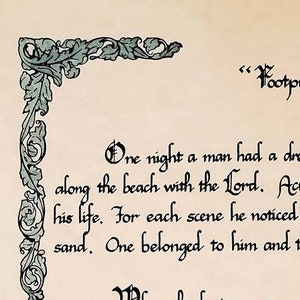 “Footpr
One night a man had a dre
along the beach with the Lord. Ac
his life. For each scene he noticed
sand. One belonged to him and t